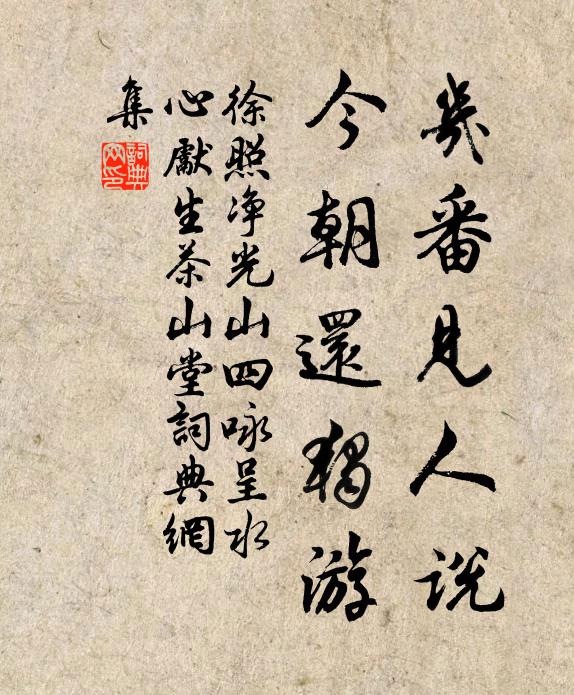 幾番見人說
今朝還獨游
徐照净光山四咏呈水
心獻生茶山堂詞典網
集
詞典网印